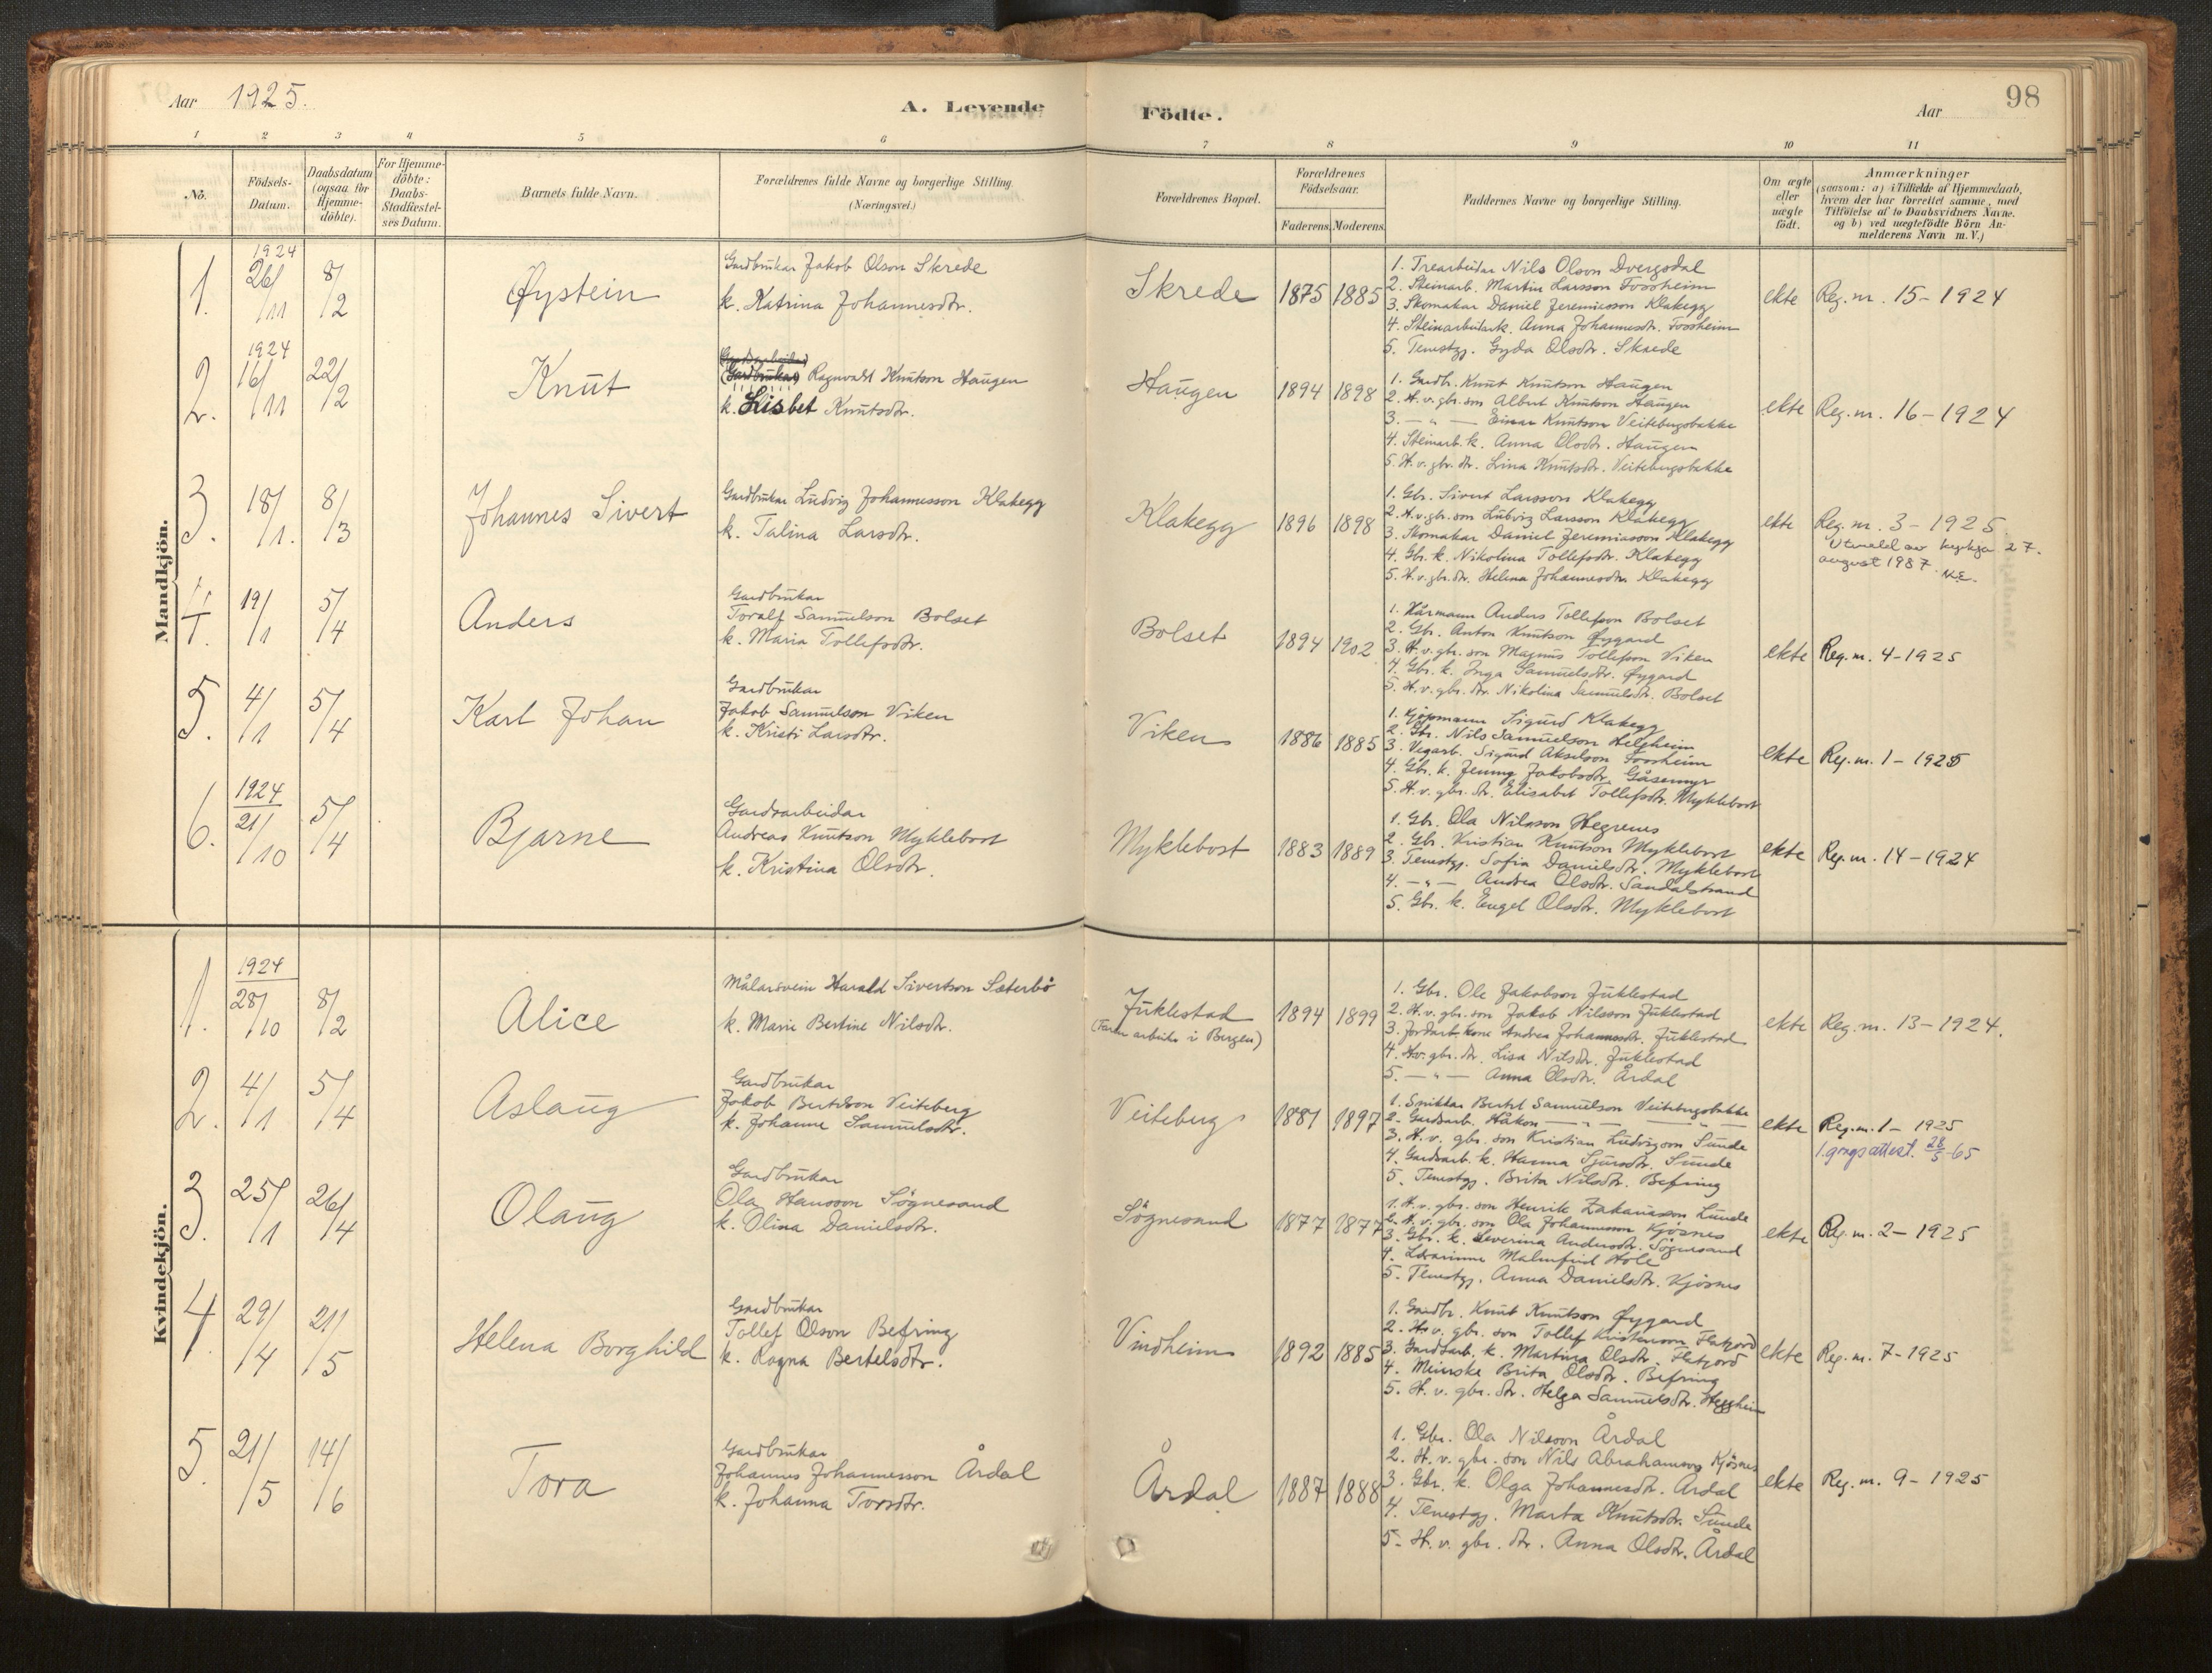 Aar 1925.
A. Levende
Födte.
Aar
98
1 2 3 4 5 6 7 8 9 10 11
No.
Födsels-Datum.
Daabsdatum (ogsaa for Hjemme-döbte).
For Hjemme-döbte: Daabs-Stadfæstel-ses Datum.
Barnets fulde Navn.
Forældrenes fulde Navne og borgerlige Stilling.
(Næringsvei.)
Forældrenes Bopæl.
Forældrenes Födselsaar.
Faderens. Moderens.
Faddernes Navne og borgerlige Stilling.
Om ægte eller uægte födt.
Anmærkninger
(saasom: a) i Tilfælde af Hjemmedaab,
hvem der har forrettet samme, med
Tilföielse af to Daabsvidners Navne.
og b) ved uægtefödte Börn An-
melderens Navn m. V.)
Mandkjön.
1. 1924 26/11 8/2 Øystein
Gardbrukar Jakob Olson Skrede
k. Katrina Johannesdtr.
Skrede 1875 1885
1. Trearbeidar Nils Olson Dvergsdal
2. Steinarb. Martin Larsson Fossheim
3. Skomakar Daniel Jeremiasson Klakegg
4. Steinarbeidark. Anna Johannesdtr. Fossheim
5. Tenestgj. Gyda Olsdtr. Skrede
ekte Reg. nr. 15 - 1924
2. 1924 16/11 22/2 Knut
(Gardbrukar) Ragnvald Knutson Haugen
k. Lisbet Knutsdtr.
Haugen 1894 1898
1. Gardb. Knut Knutson Haugen
2. H. v. gbr. son Albert Knutson Haugen
3. — " — Einar Knutson Veitebergsbakke
4. Steinarb. k. Anna Olsdtr. Haugen
5. H. v. gbr. dtr. Lina Knutsdtr. Veitebergsbakke
ekte Reg. nr. 16 - 1924
3. 18/1. 8/3 Johannes Sivert
Gardbrukar Ludvig Johannesson Klakegg
k. Talina Larsdtr.
Klakegg 1896 1898
1. Gbr. Sivert Larsson Klakegg
2. H. v. gbr. son Ludvig Larsson Klakegg
3. Skomakar Daniel Jeremiasson Klakegg
4. Gbr. k. Nikolina Tollefsdtr. Klakegg
5. H. v. gbr. dtr. Helena Johannesdtr. Klakegg
ekte Reg. nr. 3 - 1925
Utmeld av kyrkja 27.
august 1987. N.E.
4. 19/1 5/4 Anders
Gardbrukar
Toralf Samuelson Bolset
k. Maria Tollefsdtr.
Bolset 1894 1902
1. Hårmann Anders Tollefson Bolset
2. Gbr. Anton Knutson Øygard
3. H. v. gbr. son Magnus Tollefson Viken
4. Gbr. k. Inga Samuelsdtr. Øygard
5. H. v. gbr. dtr. Nikolina Samuelsdtr. Bolset
ekte Reg. nr. 4 - 1925
5. 4/1 5/4 Karl Johan
Gardbrukar
Jakob Samuelson Viken
k. Kristi Larsdtr.
Viken 1886 1885
1. Kjøpmann Sigurd Klakegg
2. Gbr. Nils Samuelson Helgheim
3. Vegarb. Sigurd Akselson Fossheim
4. Gbr. k. Jenny Jakobsdtr. Gåsemyr
5. H. v. gbr. dtr. Elisabet Tollefsdtr. Myklebost
ekte Reg. nr. 1 - 1925
6. 1924 21/10 5/4 Bjarne
Gardsarbeidar
Andreas Knutson Myklebost
k. Kristina Olsdtr.
Myklebost 1883 1889
1. Gbr. Ola Nilsson Hegrenes
2. Gbr. Kristian Knutson Myklebost
3. Tenestgj. Sofia Danielsdtr. Myklebost
4. — " — Andrea Olsdtr. Sandalstrand
5. Gbr. k. Engel Olsdtr. Myklebost
ekte Reg. nr. 14 - 1924
Kvindekjön.
1. 1924 28/10 8/2 Alice
Målarsvein Harald Sivertson Sæterbö
k. Marie Bertine Nilsdtr.
Juklestad
(Faren arbeider i Bergen)
1894 1899
1. Gbr. Ole Jakobson Juklestad
2. H. v. gbr. son Jakob Nilsson Juklestad
3. Jordarb. kone Andrea Johannesdtr. Juklestad
4. H.v. gbr. dtr. Lisa Nilsdtr. Juklestad
5. — " — Anna Olsdtr. Årdal
ekte Reg. nr. 13 - 1924.
2. 4/1 5/4 Aslaug
Gardbrukar
Jakob Bertelson Veiteberg
k. Johanne Samuelsdtr.
Veiteberg 1881 1897
1. Snikkar Bertel Samuelson Veitebergsbakke
2. Gardsarb. Håkon — " — — " —
3. H. v. gbr. son Kristian Ludvigson Sunde
4. Gardsarb. k. Hanna Sjursdtr. Sunde
5. Tenestgj. Brita Nilsdtr. Befring
ekte Reg. nr. 1 - 1925
1. gongs attest. 28/5-65
3. 25/1 26/4 Olaug
Gardbrukar
Ola Hansson Sögnesand
k. Olina Danielsdtr.
Sögnesand 1877 1877
1. H. v. gbr. son Henrik Zakariasson Lunde
2. H. v. gbr. son Ola Johannesson Kjösnes
3. Gbr. k. Severina Andersdtr. Sögnesand
4. Lærarinne Malmfrid Hole
5. Tenestgj. Anna Danielsdtr. Kjösnes
ekte Reg. nr. 2 - 1925
4. 29/4 21/5 Helena Borghild
Gardbrukar
Tollef Olson Befring
k. Ragna Bertelsdtr.
Vindheim 1892 1885
1. Gardbr. Knut Knutson Øygard
2. H. v. gbr. son Tollef Kristenson Flatjord
3. Gardsarb. k. Martina Olsdtr. Flatjord
4. Meierske Brita Olsdtr. Befring
5. H. v. gbr. dtr. Helga Samuelsdtr. Heggheim
ekte Reg. nr. 7 - 1925
5. 21/5 14/6 Tora
Gardbrukar
Johannes Johannesson Årdal
k. Johanna Torsdtr.
Årdal 1887 1888
1. Gbr. Ola Nilsson Årdal
2. H. v. gbr. son Nils Abrahamson Kjösnes
3. Gbr. k. Olga Johannesdtr. Årdal
4. Tenestgj. Marta Knutsdtr. Sunde
5. H. v. gbr. dtr. Anna Olsdtr. Årdal
ekte Reg. nr. 9 - 1925